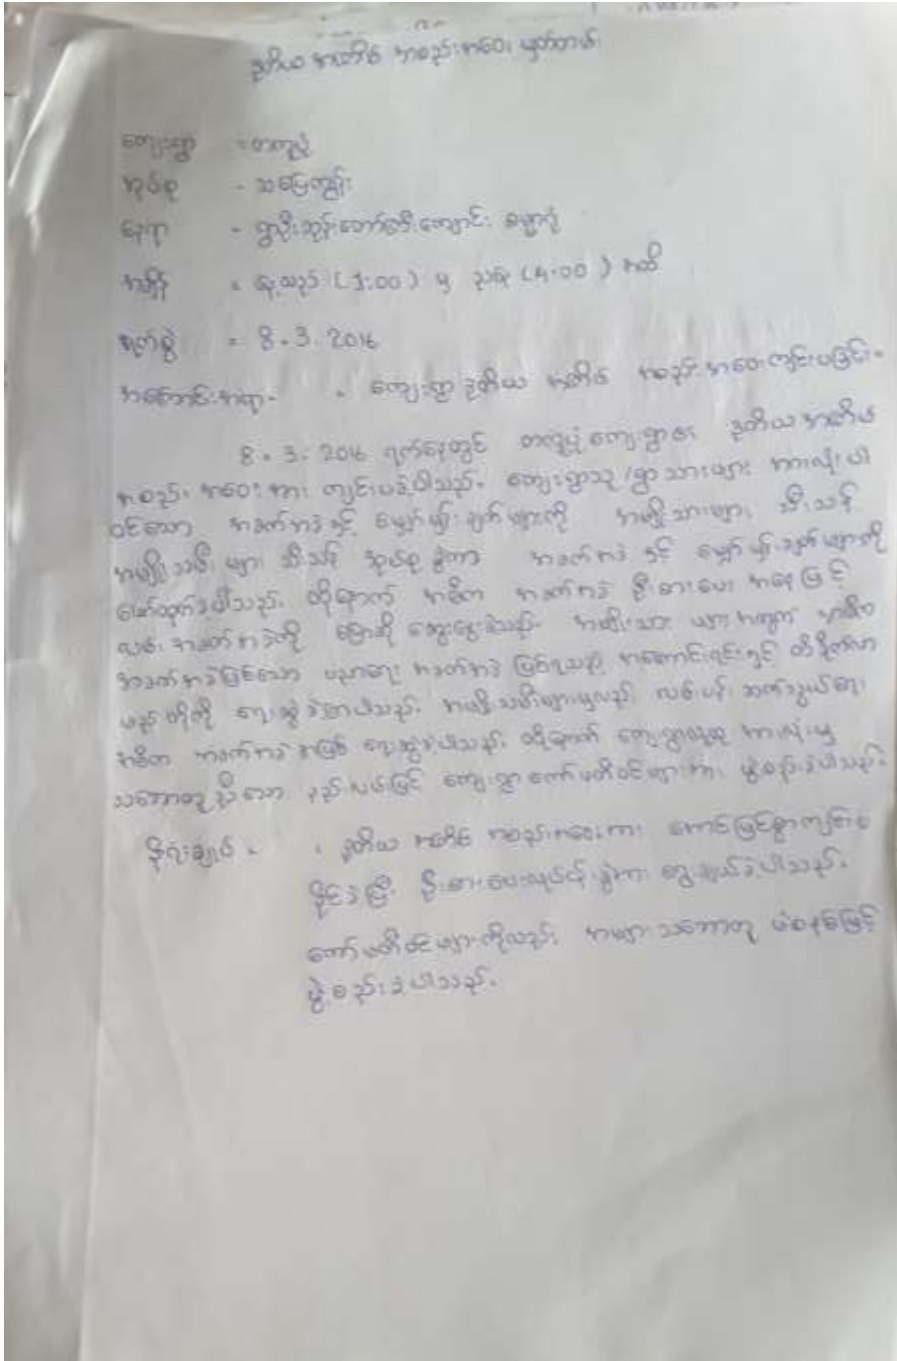 ဒုတိယ အကြိမ် အစည်းအဝေး မှတ်တမ်း
ကျေးရွာ = တကူပုံ
အုပ်စု - သမြေကျွန်း
နေရာ - ရွာဦးဘုန်းတော်ကြီးကျောင်း
အချိန် = နေ့လည် (1:00) မှ ညနေ (4:00) အထိ
ရက်စွဲ = 8.3.2016
အကြောင်းအရာ - - ကျေးရွာ ဒုတိယ အကြိမ် အစည်းအဝေးကျင်းပခြင်း။
8.3.2016 ရက်နေ့တွင် တကူပုံကျေးရွာ၏ ဒုတိယ အကြိမ်
အစည်းအဝေးအား ကျင်းပခဲ့ပါသည်။ ကျေးရွာသူ/ရွာသားများ အားလုံးပါ
ဝင်သော အခက်အခဲနှင့် မျှော်မှန်းချက်များကို အမျိုးသားများ သီးသန့်
အမျိုးသမီးများ သီးသန့် အုပ်စုခွဲကာ အခက်အခဲ နှင့် မျှော်မှန်းချက်များကို
ဖော်ထုတ်ခဲ့ပါသည်။ ထို့နောက် အဓိက အခက်အခဲ ဦးစားပေး အနေဖြင့်
လမ်းအခက်အခဲကို ပြောဆို ဆွေးနွေးခဲ့သည်။ အမျိုးသား များအတွက် အဓိက
အခက်အခဲဖြစ်သော ပညာရေး အခက်အခဲ ဖြစ်ရသည့် အကြောင်းရင်းနှင့်
မည်တို့ကို ရေးဆွဲခဲ့ကြပါသည်။ အမျိုးသမီးများမှလည်း လမ်းပန်းဆက်သွယ်ရေး
အဓိက အခက်အခဲအဖြစ် ရေးဆွဲခဲ့ပါသည်။ ထို့နောက် ကျေးရွာလူထု အားလုံးမှ
သဘောတူညီသော နည်းလမ်းဖြင့် ကျေးရွာကော်မတီဝင်များအား ဖွဲ့စည်းခဲ့ပါသည်။
နိဂုံးချုပ် - - ဒုတိယ အကြိမ် အစည်းအဝေးအား အောင်မြင်စွာကျင်းပ
နိုင်ခဲ့ပြီး ဦးစားပေးလုပ်ငန်းခွဲအား ရွေးချယ်ခဲ့ပါသည်။
ကော်မတီဝင်များကိုလည်း အများသဘောတူ မဲစနစ်ဖြင့်
ဖွဲ့စည်းခဲ့ပါသည်။